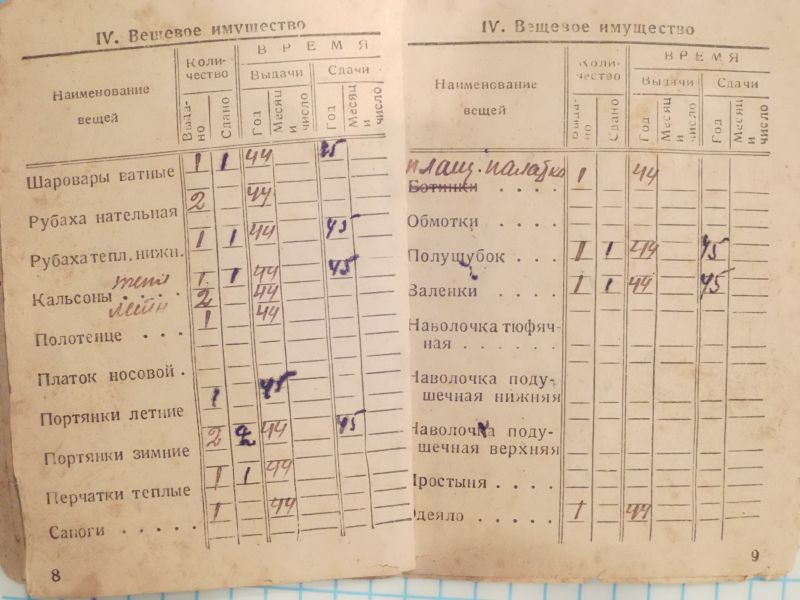 IV. Вещевое имущество
Наименование
вещей
Коли-
чество
ВРЕМЯ
Выдачи
Сдачи
Выда-
но
Сдано
Год
Месяц
и
число
Год
Месяц
и
число
Шаровары ватные 1 1 44 45
Рубаха нательная 2 44
Рубаха тепл. нижн. 1 1 44 45
тепл 1 1 44 45
Кальсоны . . . . 2 44
летн
Полотенце . . . 1 44
Платок носовой .
Портянки летние 1 45
Портянки зимние 2 2 44 45
Перчатки теплые 1 1 44
Сапоги . . . . . 1 44
8
IV. Вещевое имущество
Наименование
вещей
Коли-
чество
ВРЕМЯ
Выдачи
Сдачи
Выда-
но
Сдано
Год
Месяц
и
число
Год
Месяц
и
число
плащ. палатка 1 44
Ботинки . . . .
Обмотки . . . .
Полушубок . . . 1 1 44 45
Валенки . . . . 1 1 44 45
Наволочка тюфяч-
ная . . . . . .
Наволочка поду-
шечная нижняя
Наволочка поду-
шечная верхняя
Простыня . . . .
Одеяло . . . . . 1 44
9